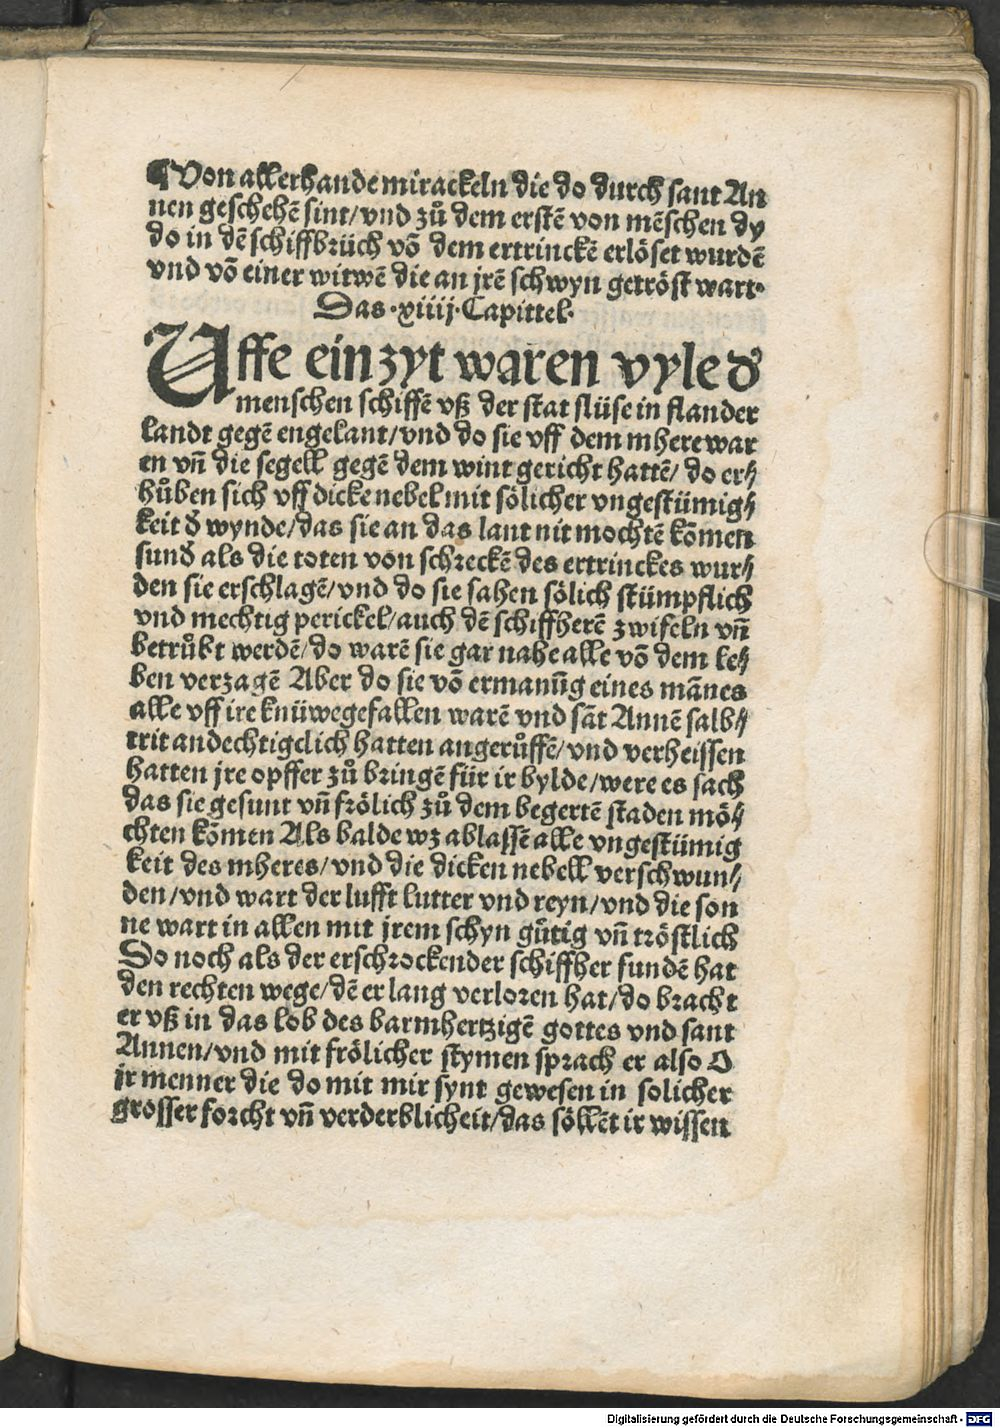 ¶Von allerhande mirackeln die do durch sant An
nen geschehē sint/vnd zů dem erstē von mēschen dy
do in dē schiffbrüch vō dem ertrinckē erlöset wurdē
vnd vō einer witwē die an jrē schwyn getröst wart.
Das .xiiij. Capittel.
Uffe ein zyt waren vyle d'
menschen schiffē vß der stat slüse in flander
landt gegē engelant/vnd do sie vff dem mhere war
en vn̄ die segell gegē dem wint gericht hattē/ do er⸗
hůben sich vff dicke nebel mit sölicher vngestümig⸗
keit d' wynde/das sie an das lant nit mochtē kōmen
sund' als die toten von schreckē des ertrinckes wur⸗
den sie erschlagē/vnd do sie sahen sölich stümpflich
vnd mechtig perickel/auch dē schiffherē zwifeln vn̄
betrůbt werdē/do warē sie gar nahe alle vō dem le⸗
ben verzagē Aber do sie vō ermanūg eines mānes
alle vff ire knüwe gefallen warē vnd sāt Annē salb⸗
trit andechtigelich hatten angerůffē/vnd verheissen
hatten jre opffer zů bringē für ir bylde/were es sach
das sie gesunt vn̄ frölich zů dem begertē staden mö⸗
chten kōmen Als balde wz ablassē alle vngestümig
keit des mheres/vnd die dicken nebell verschwun⸗
den/vnd wart der lufft lutter vnd reyn/vnd die son
ne wart in allen mit jrem schyn gůtig vn̄ tröstlich
Do noch als der erschrockender schiffher fundē hat
den rechten wege/dē er lang verloren hat/do bracht
er vß in das lob des barmhertzigē gottes vnd sant
Annen/vnd mit frölicher stymen sprach er also O
jr menner die do mit mir synt gewesen in solicher
grosser forcht vn̄ verderblicheit/das söllēt ir wissen
Digitalisierung gefördert durch die Deutsche Forschungsgemeinschaft - DFG